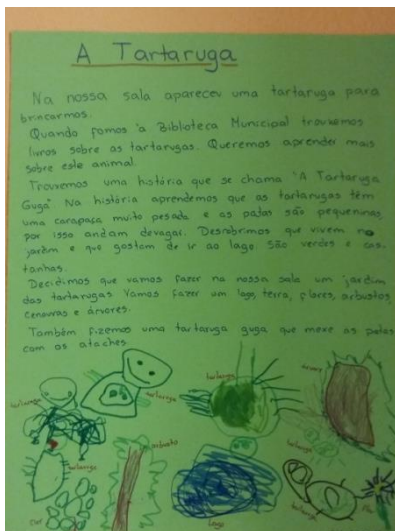 A Tartaruga
Na nossa sala apareceu uma tartaruga para
brincarmos.
Quando fomos à Biblioteca Municipal trouxemos
livros sobre as tartarugas. Queremos aprender mais
sobre este animal.
Trouxemos uma história que se chama "A Tartaruga
Guga" Na história aprendemos que as tartarugas têm
uma carapaça muito pesada e as patas são pequeninas,
por isso andam devagar. Descobrimos que vivem no
jardim e que gostam de ir ao lago. São verdes e cas-
tanhas.
Decidimos que vamos fazer na nossa sala um jardim
das tartarugas. Vamos fazer um lago, terra, flores, arbustos,
cenouras e árvores.
Também fizemos uma tartaruga guga que mexe as patas
com os ataches.
tartaruga
tartaruga
tartaruga
árvore
arbusto
tartaruga
tartaruga
tartaruga
Flor
Flor
lago